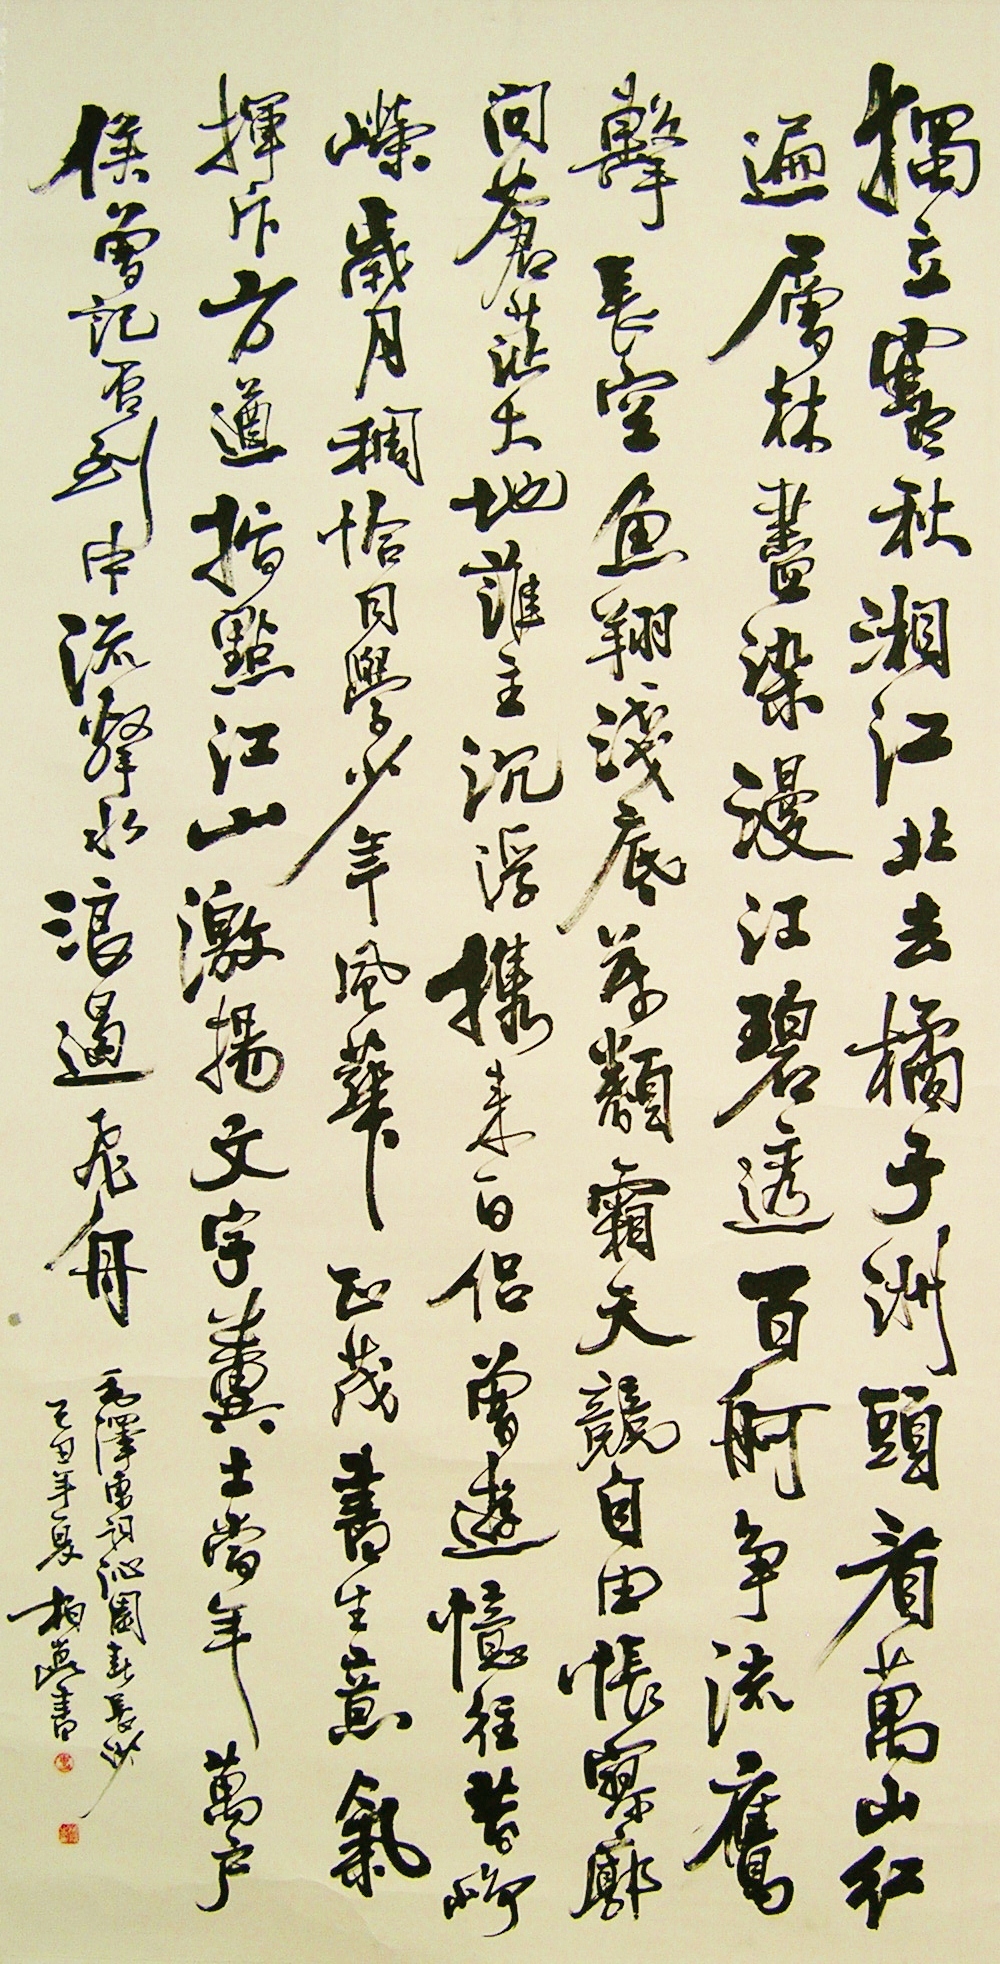 獨立寒秋湘江北去橘子洲頭看萬山紅
遍層林盡染漫江碧透百舸争流鷹
擊長空魚翔淺底萬類霜天競自由悵寥廓
问蒼茫大地誰主沉浮攜来百侣曾遊憶往昔崢
嶸歲月稠恰同學少年風華正茂書生意氣
揮斥方遒指點江山激揚文字糞土當年萬户
侯曾記否到中流擊水浪遏飛舟
毛澤東詞沁園春長沙
己丑年夏柏書